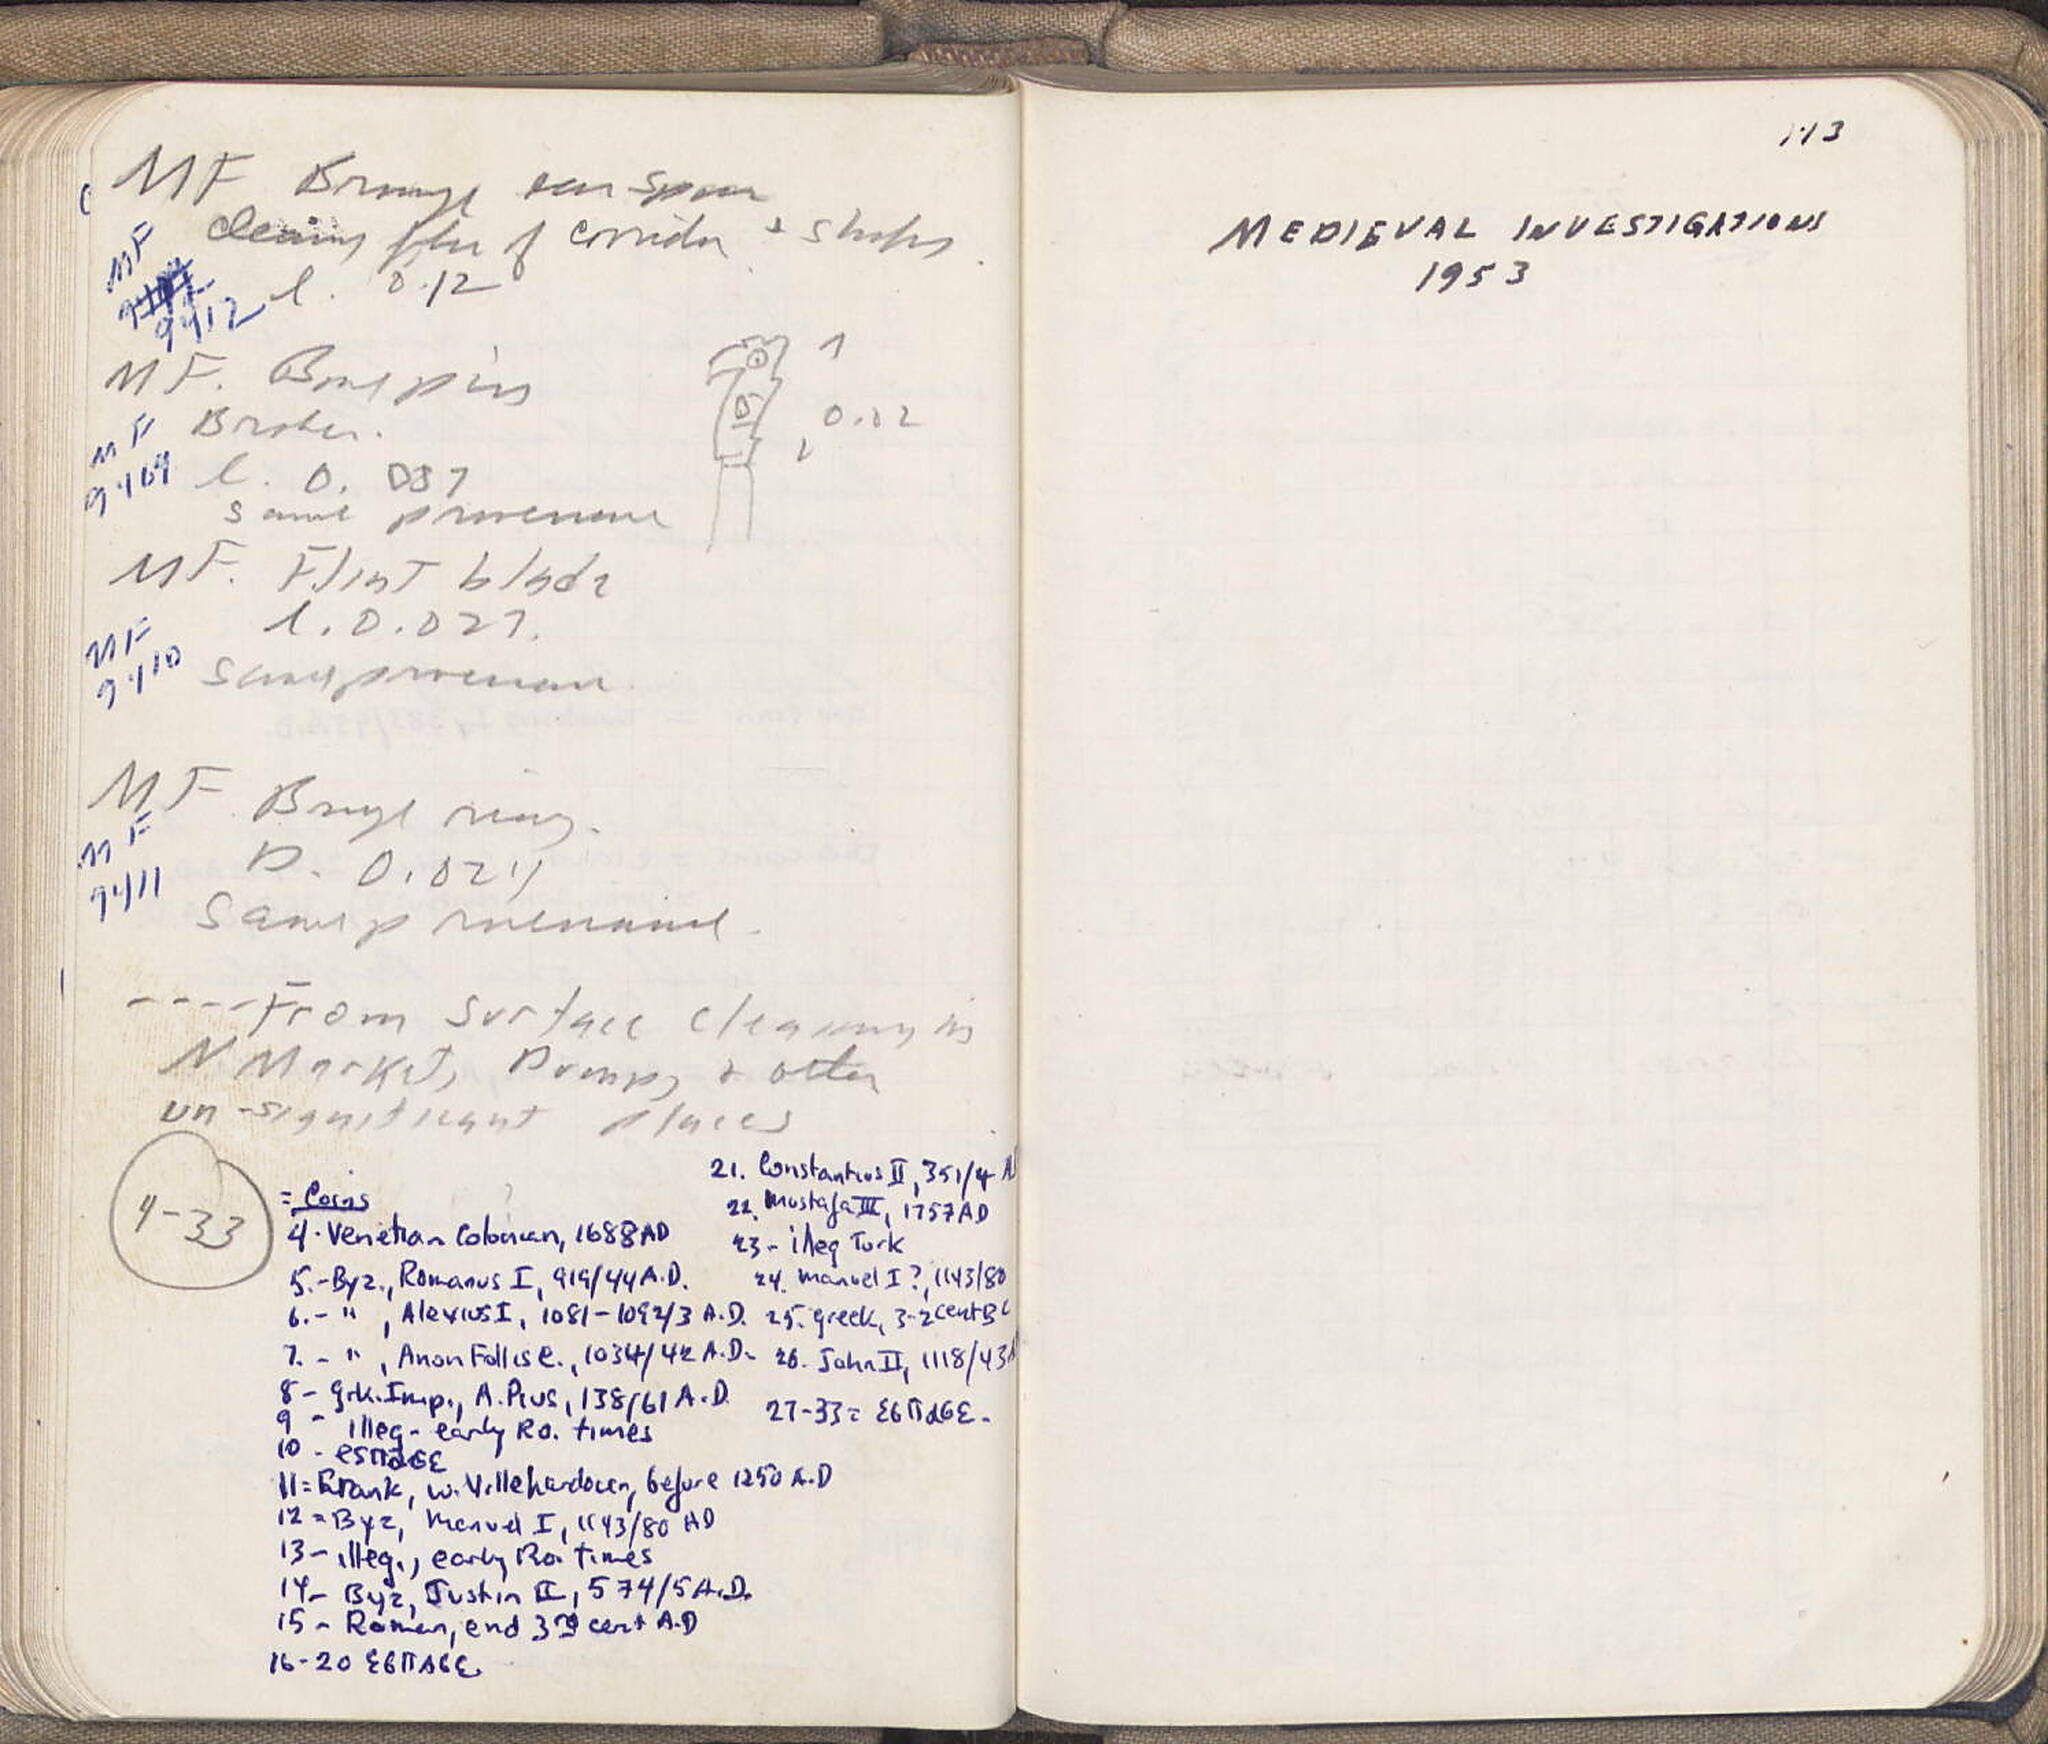 MF Bronze ear spoon
cleaning filler of corridor + shops.
MF
9412
l. 0.12
MF. Bone pin
Broken.
MF
9409
l. 0.087
same provenance
1
0.02
MF. Flint blade
l. 0.027.
MF
9410
same provenance.
MF Bronze ring.
MF
9411
D. 0.024
Same provenance.
----From surface cleaning in
N Market, Dumps, & other
un-significant places
4-33
= Coins
4. Venetian Colonian, 1688 AD
5.- Byz., Romanus I, 919/44 A.D.
6.- " , Alexius I, 1081-1092/3 A.D.
7.- " , Anon Follis C., 1034/42 A.D.
8- Grk. Imp., A. Pius, 138/61 A.D.
9 - illeg - early Ro. times
10 -
11= Frank, W. Villehardouin, before 1250 A.D
12 = Byz, Manuel I, 1143/80 AD
13- illeg., early Ro. times
14- Byz, Justin II, 574/5 A.D.
15 - Roman, end 3rd cent A.D
16-20
21. Constantius II, 351/4 A
22. Mustafa III, 1757 AD
23- illeg Turk
24. Manuel I?, 1143/80
25. Greek, 3-2 cent BC
26. John II, 1118/43 A
27-33=
113
MEDIEVAL INVESTIGATIONS
1953